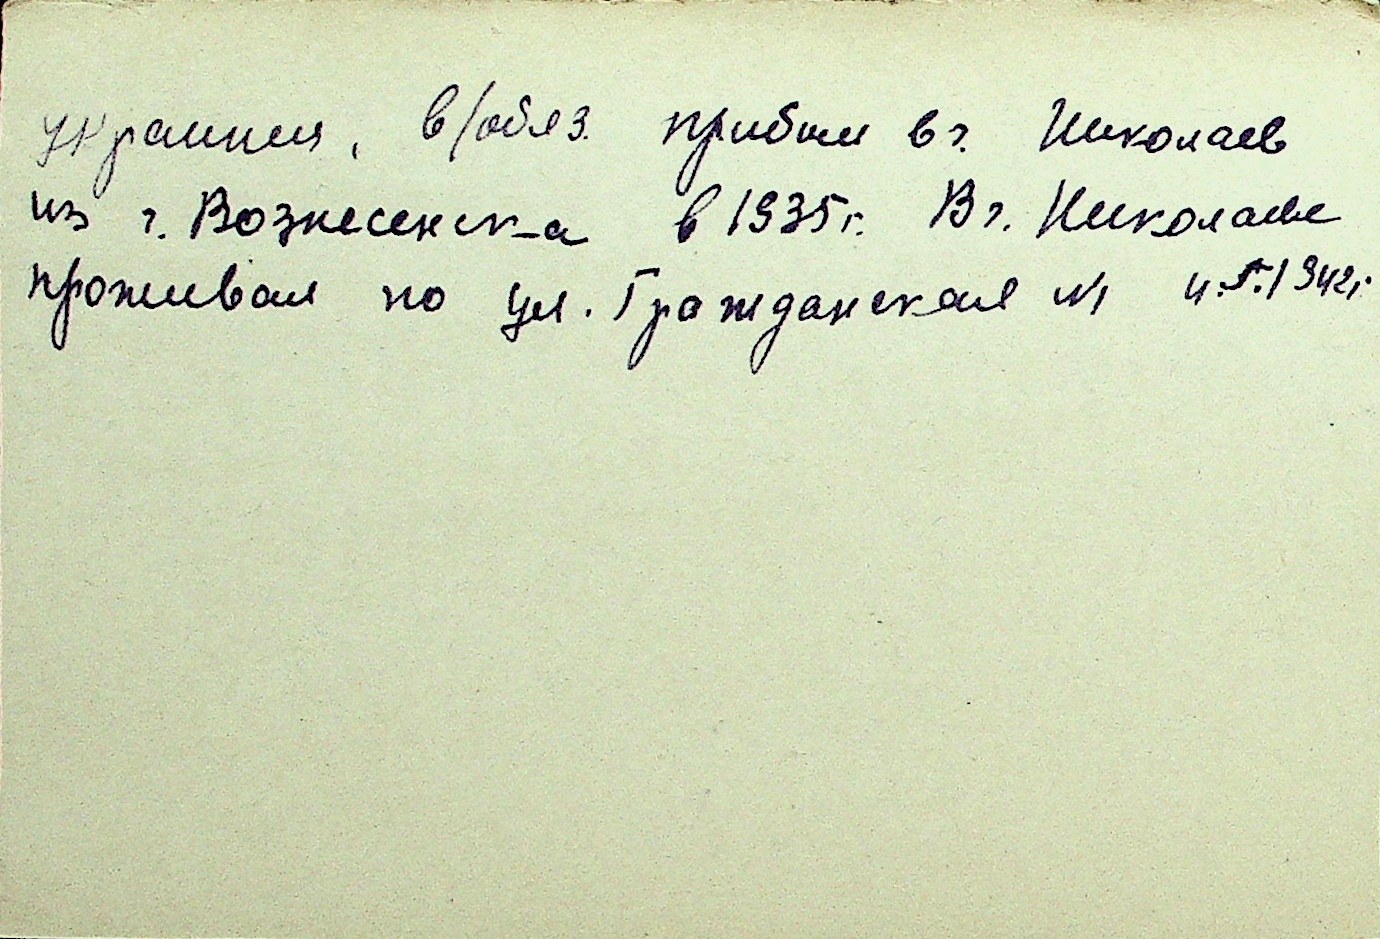 украинец, в/обяз. прибыл в г. Николаев
из г. Вознесенск-а в 1935г. В г. Николаеве
проживал по ул. Гражданская №1 1942г.